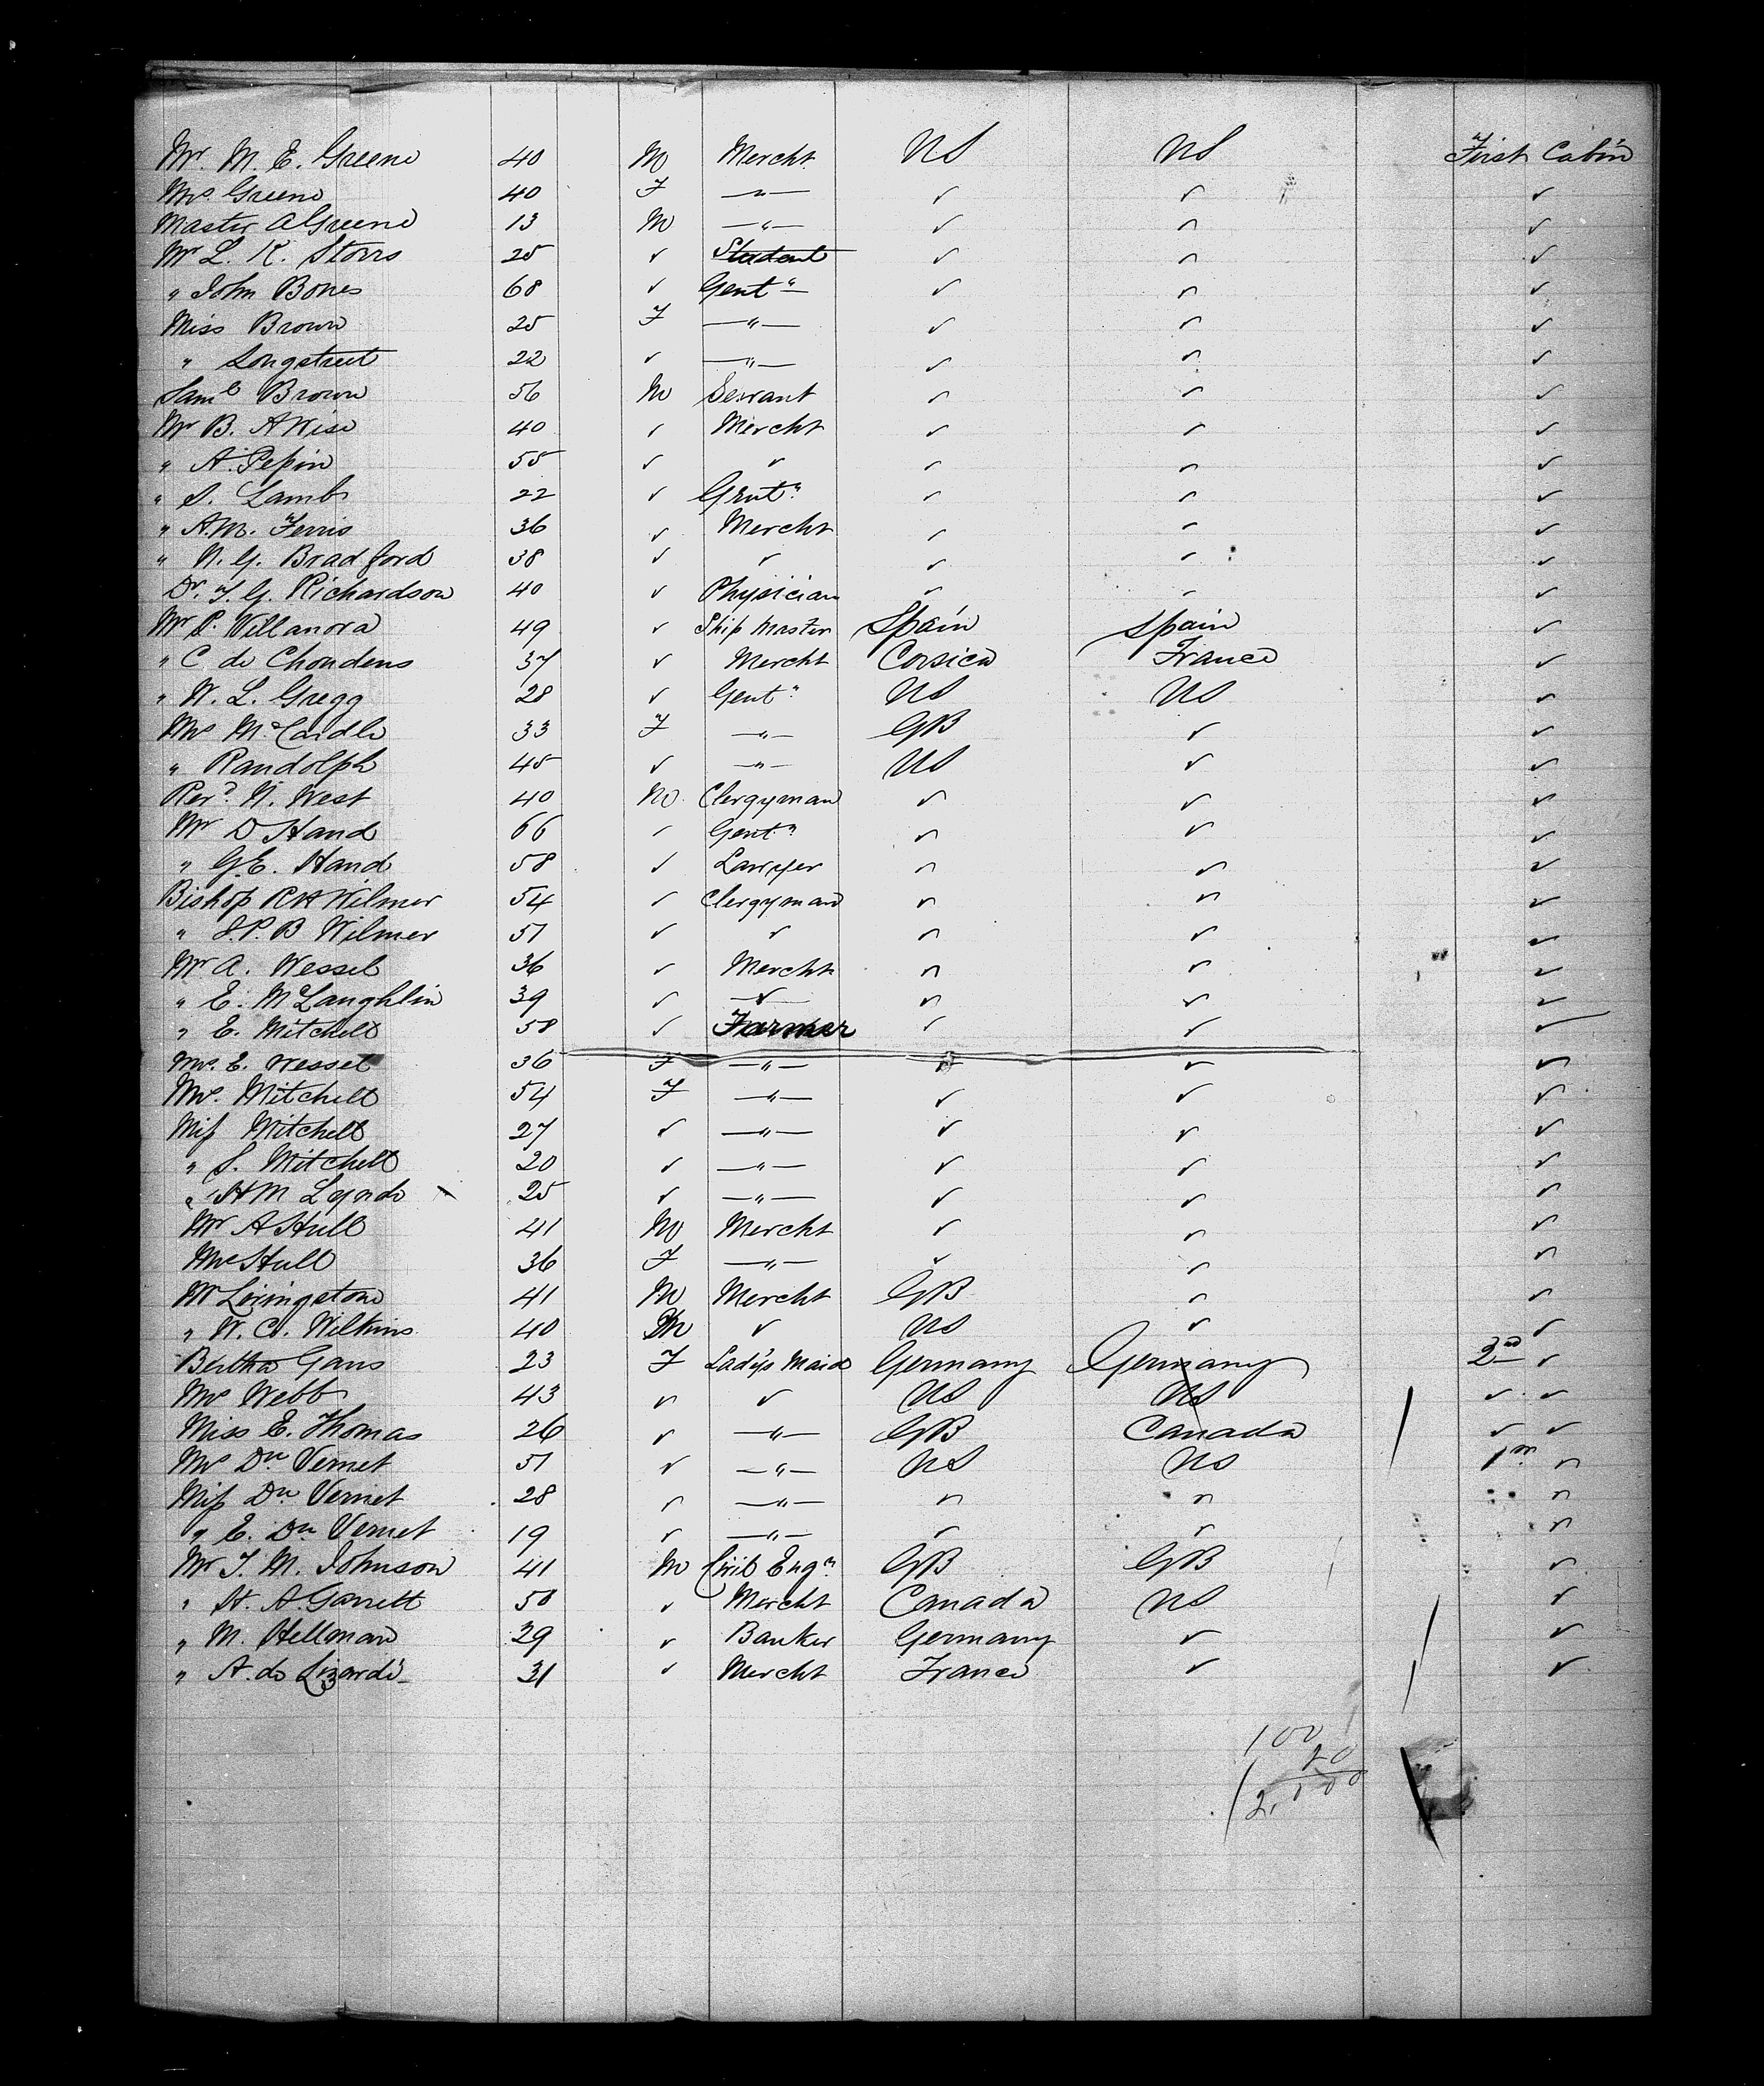 Mr. M. E. Greene 40 M Mercht US US First Cabin
Mrs. Greene 40 F —"— ✓ ✓ ✓
Master A Greene 13 M —"— ✓ ✓ ✓
Mr L. R. Storrs 25 ✓ Student ✓ ✓ ✓
" John Bones 68 ✓ Gent" ✓ ✓ ✓
Miss Brown 25 F —"— ✓ ✓ ✓
" Longstreet 22 ✓ —"— ✓ ✓ ✓
Saml Brown 56 M Servant ✓ ✓ ✓
Mr B. A Wise 40 ✓ Mercht ✓ ✓ ✓
" A. Pepin 55 ✓ ✓ ✓ ✓ ✓
" S. Lamb 22 ✓ Gent" ✓ ✓ ✓
" A.M. Ferris 36 ✓ Mercht ✓ ✓ ✓
" N. G. Bradford 38 ✓ ✓ ✓ ✓ ✓
Dr. T. G. Richardson 40 ✓ Physician ✓ ✓ ✓
Mr P. Villanova 49 ✓ Ship Master Spain Spain ✓
" C de Choudens 37 ✓ Mercht Corsica France ✓
" W. L. Gregg 28 ✓ Gent" US US ✓
Mrs McCardle 33 F —"— GB ✓ ✓
" Randolph 45 ✓ —"— US ✓ ✓
Revd. N. West 40 M Clergyman ✓ ✓ ✓
Mr D Hand 66 ✓ Gent" ✓ ✓ ✓
" G.E. Hand 58 ✓ Lawyer ✓ ✓ ✓
Bishop R H Wilmer 54 ✓ Clergyman ✓ ✓ ✓
" J. P. B Wilmer 51 ✓ ✓ ✓ ✓ ✓
Mr A. Wessel 36 ✓ Mercht ✓ ✓ ✓
" E. McLaughlin 39 ✓ ✓ ✓ ✓ ✓
" E. Mitchell 58 ✓ Farmer ✓ ✓ ✓
Mrs. E. Wessel 36 F —"— ✓ ✓ ✓
Mrs. Mitchell 54 F —"— ✓ ✓ ✓
Miss Mitchell 27 ✓ —"— ✓ ✓ ✓
" S. Mitchell 20 ✓ —"— ✓ ✓ ✓
" H M Lynde 25 ✓ —"— ✓ ✓ ✓
Mr A Hull 41 M Mercht ✓ ✓ ✓
Mrs Hull 36 F —"— ✓ ✓ ✓
Mr Livingstone 41 M Mercht GB ✓ ✓
" W. C. Wilkins 40 M ✓ US ✓ ✓
Bertha Gans 23 F Lady's Maid Germany Germany 2nd ✓
Mrs Webb 43 ✓ ✓ US US ✓ ✓
Miss E. Thomas 26 ✓ —"— GB Canada ✓ ✓
Mrs Du Vernet 51 ✓ —"— US US 1st ✓
Miss Du Vernet 28 ✓ —"— ✓ ✓ ✓
" E. Du Vernet 19 ✓ —"— ✓ ✓ ✓
Mr T. M. Johnson 41 M Civil Engr GB GB ✓
" H. A. Garrett 50 ✓ Mercht Canada US ✓
" M. Hellman 29 ✓ Banker Germany ✓ ✓
" A. de Lizardi 31 ✓ Mercht France ✓ ✓
100
20
2,000